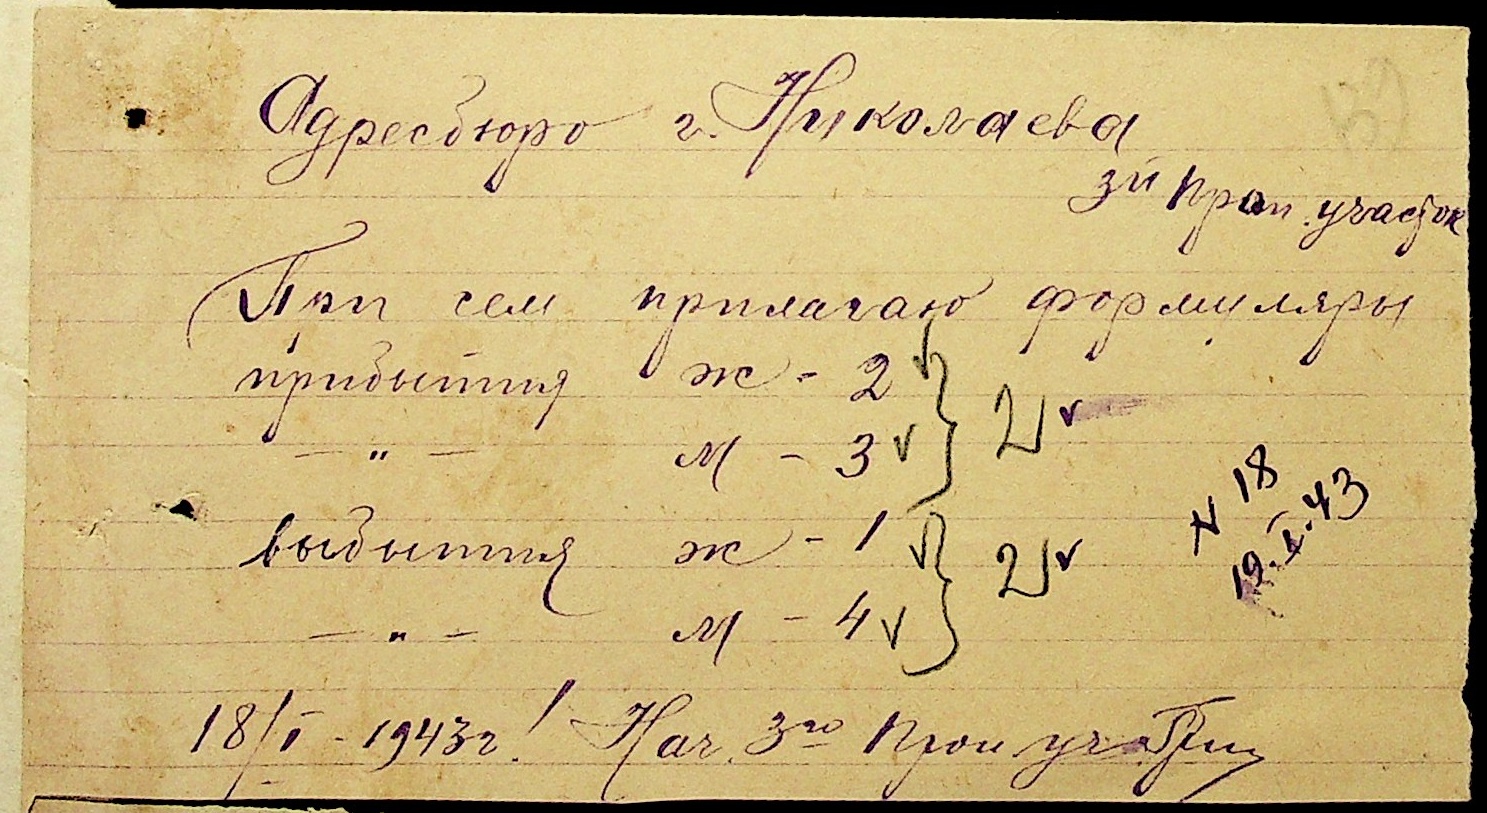 Адресбюро г. Николаева
3й Проп. участок
При сем прилагаю формуляры
прибытия ж - 2
— „ — м - 3
выбытия ж - 1
— „ — м - 4
N 18
19.I.43
18/I - 1943г. Нач. 3го Проп уч